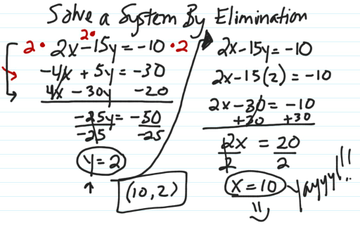 Solve a System By Elimination
2• 2• 2x - 15y = -10 • 2
-4x + 5y = -30
4x - 30y -20
-25y = -50
-25 -25
y = 2
(10, 2)
2x - 15y = -10
2x - 15(2) = -10
2x - 30 = -10
+30 +30
2x = 20
2 2
x = 10
yayyy!!!